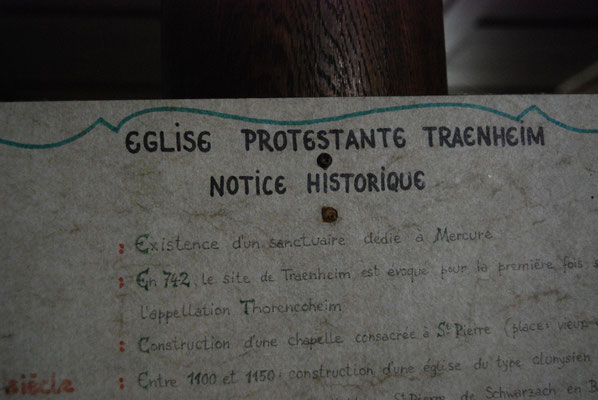 EGLISE PROTESTANTE TRAENHEIM
NOTICE HISTORIQUE
: Existence d'un sanctuaire dédié à Mercure
: En 742, le site de Traenheim est évoqué pour la première fois
l'appellation Thorencoheim
: Construction d'une chapelle consacrée à St Pierre (place: vieux
siècle : Entre 1100 et 1150: construction d'une église du type clunysien
St Pierre de Schwarzach en B